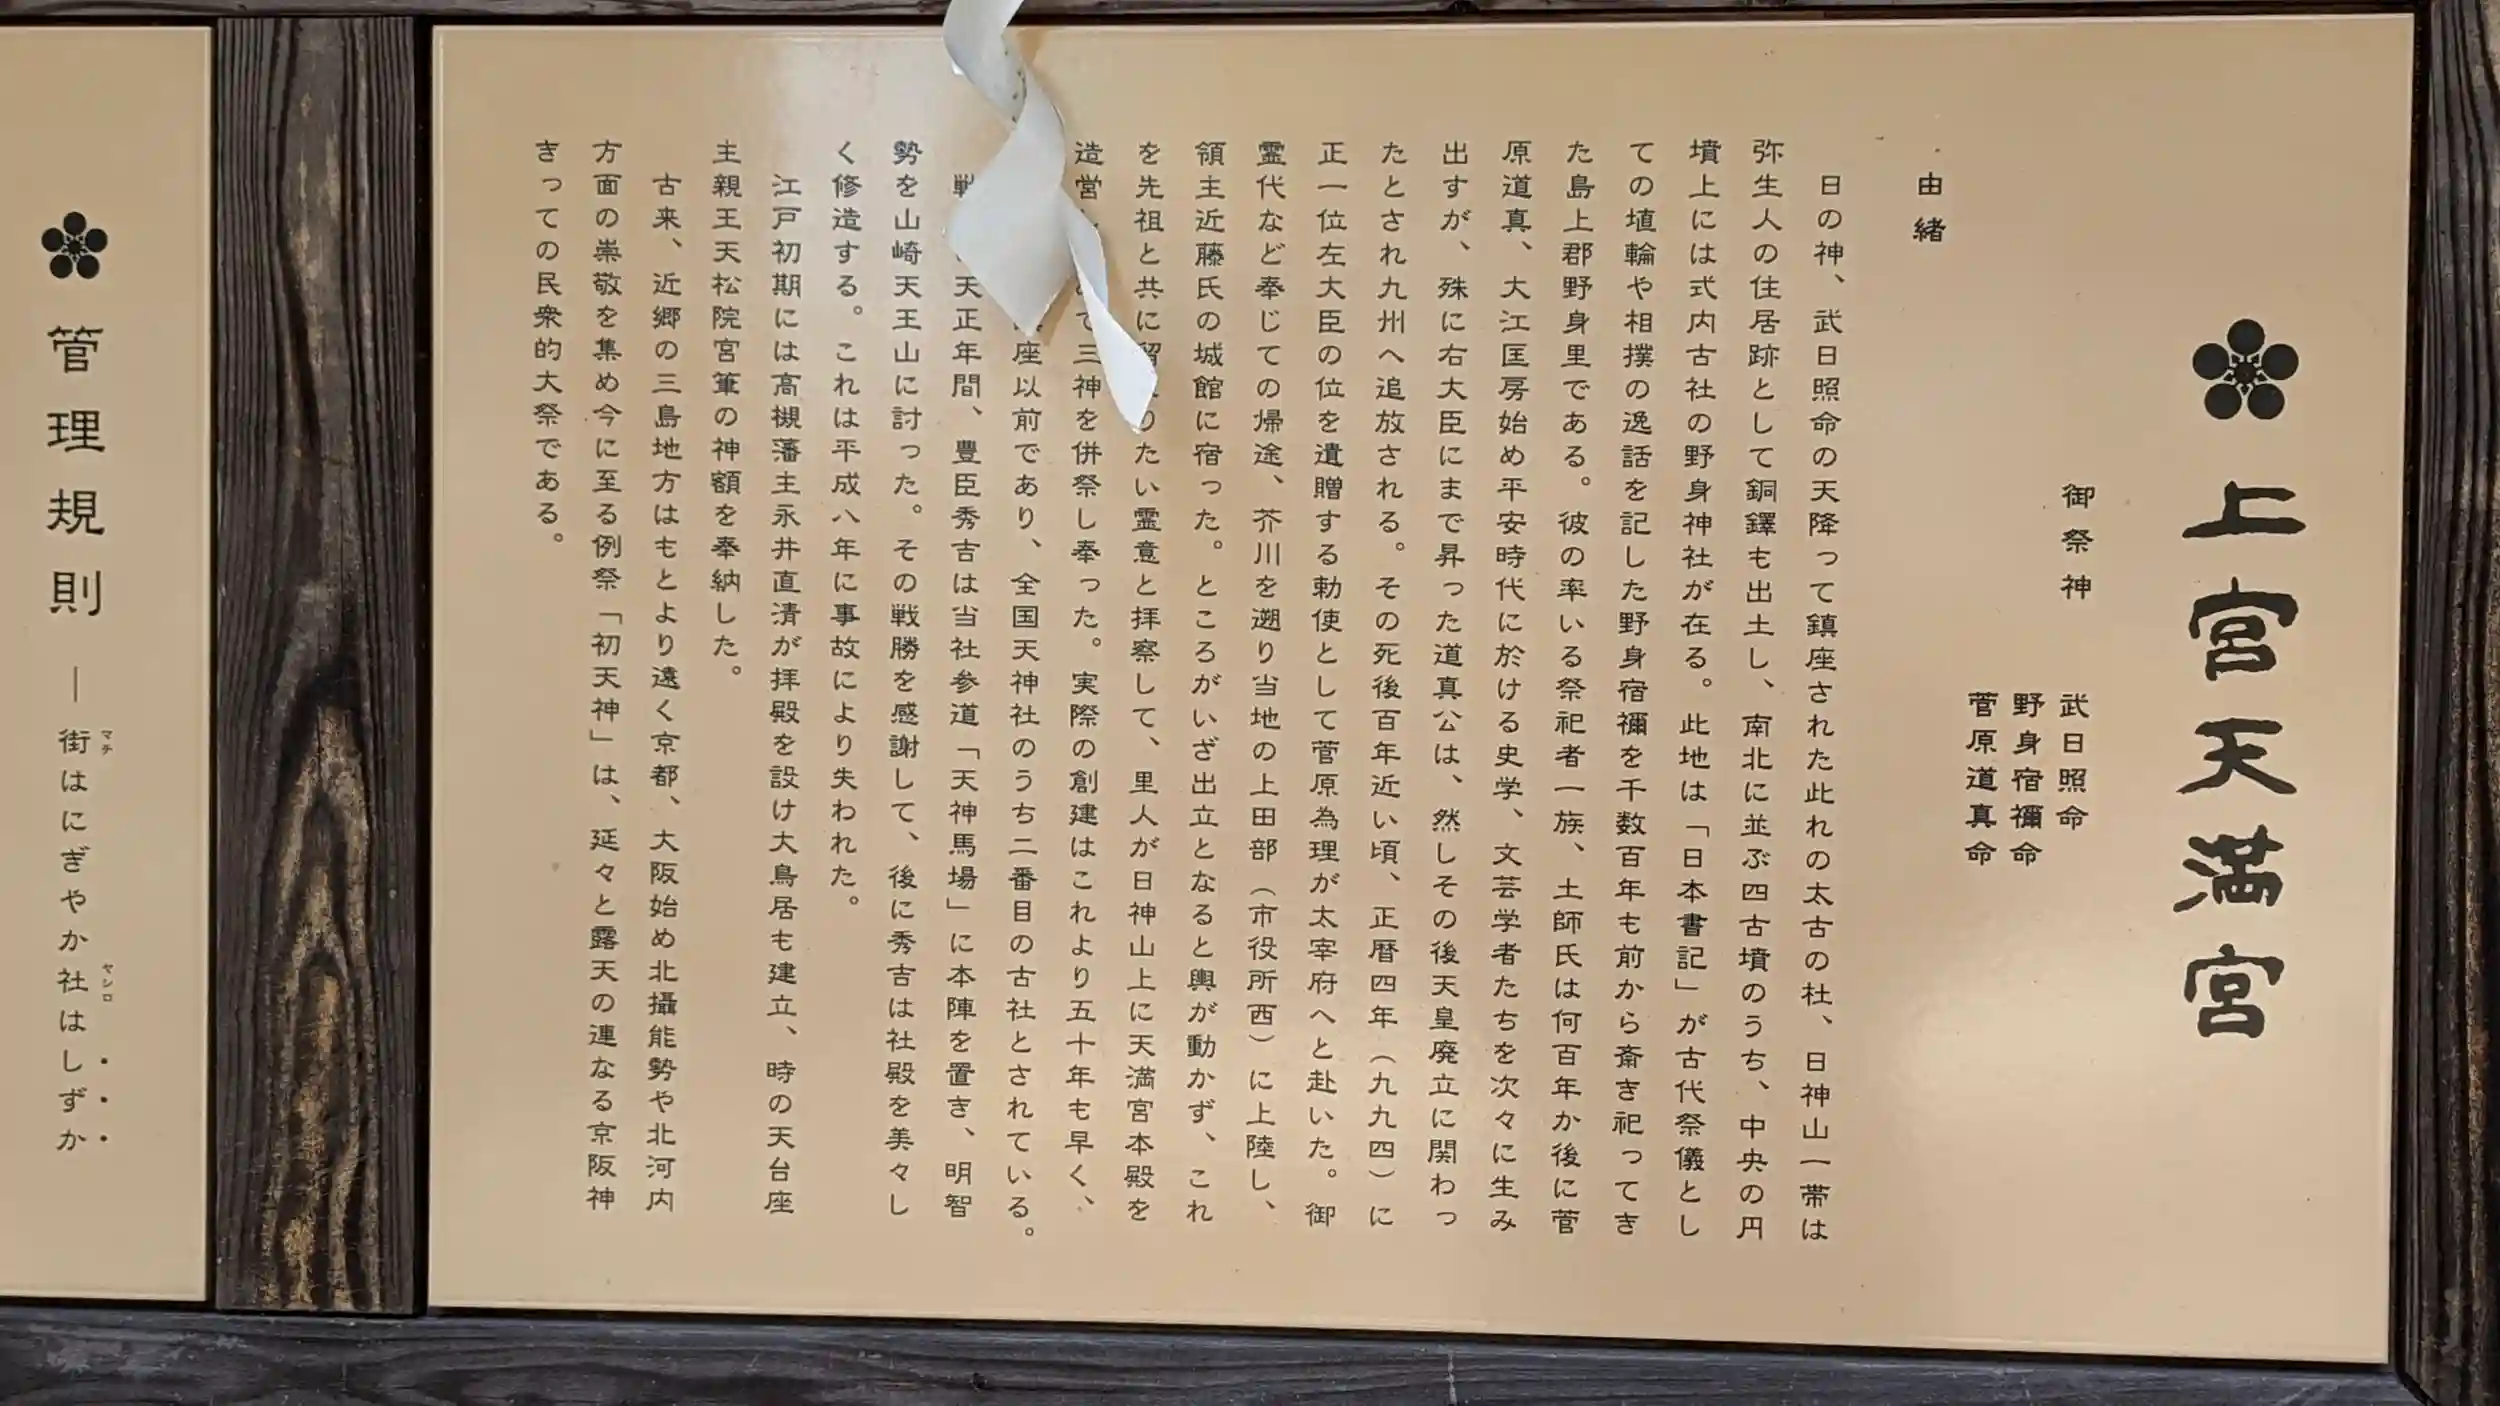 上宮天満宮
御祭神
武日照命
野身宿禰命
菅原道真命
由緒
日の神、武日照命の天降って鎮座された此れの太古の杜、日神山一帯は
弥生人の住居跡として銅鐸も出土し、南北に並ぶ四古墳のうち、中央の円
墳上には式内古社の野身神社が在る。此地は「日本書記」が古代祭儀とし
ての埴輪や相撲の逸話を記した野身宿禰を千数百年も前から斎き祀ってき
た島上郡野身里である。彼の率いる祭祀者一族、土師氏は何百年か後に菅
原道真、大江匡房始め平安時代に於ける史学、文芸学者たちを次々に生み
出すが、殊に右大臣にまで昇った道真公は、然しその後天皇廃立に関わっ
たとされ九州へ追放される。その死後百年近い頃、正暦四年（九九四）に
正一位左大臣の位を遺贈する勅使として菅原為理が太宰府へと赴いた。御
霊代など奉じての帰途、芥川を遡り当地の上田部（市役所西）に上陸し、
領主近藤氏の城館に宿った。ところがいざ出立となると輿が動かず、これ
を先祖と共に留りたい霊意と拝察して、里人が日神山上に天満宮本殿を
造営て三神を併祭し奉った。実際の創建はこれより五十年も早く、
座以前であり、全国天神社のうち二番目の古社とされている。
戦天正年間、豊臣秀吉は当社参道「天神馬場」に本陣を置き、明智
勢を山崎天王山に討った。その戦勝を感謝して、後に秀吉は社殿を美々し
く修造する。これは平成八年に事故により失われた。
江戸初期には高槻藩主永井直清が拝殿を設け大鳥居も建立、時の天台座
主親王天松院宮筆の神額を奉納した。
古来、近郷の三島地方はもとより遠く京都、大阪始め北攝能勢や北河内
方面の崇敬を集め今に至る例祭「初天神」は、延々と露天の連なる京阪神
きっての民衆的大祭である。
管理規則 ― 街はにぎやか社はしずか
マチ
ヤシロ